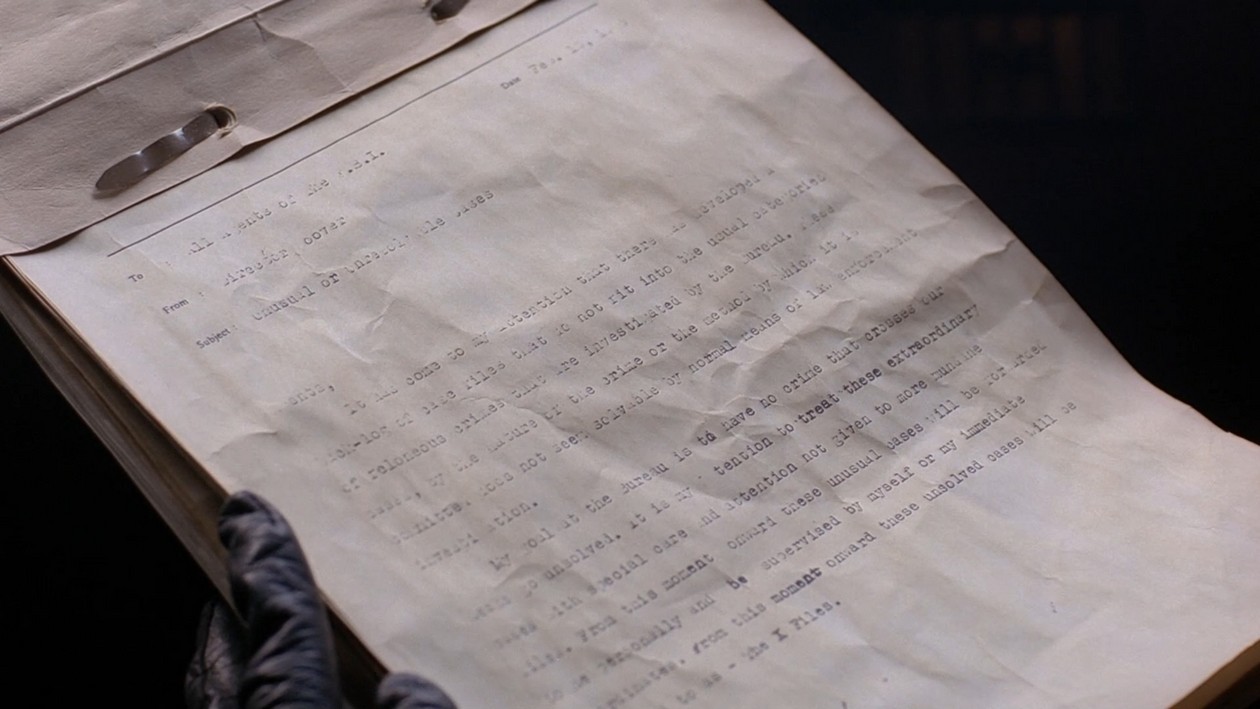 Date Feb.
To : All Agents of the F.B.I.
From : Director Hoover
Subject: unusual or unsolvable cases
It has come to my attention that there is developed a
of case files that do not fit into the usual categories
of felonious crimes that are investigated by the Bureau. These
cases, by the nature of the crime or the method by which it is
committed, does not seem solvable by normal means of law enforcement
investigation.
My goal at the Bureau is to have no crime that crosses our
desks go unsolved. It is my intention to treat these extraordinary
cases with special care and attention not given to more mundane
files. From this moment onward these unusual cases will be forwarded
to me personally and be supervised by myself or my immediate
from this moment onward these unsolved cases will be
to as - the X Files.